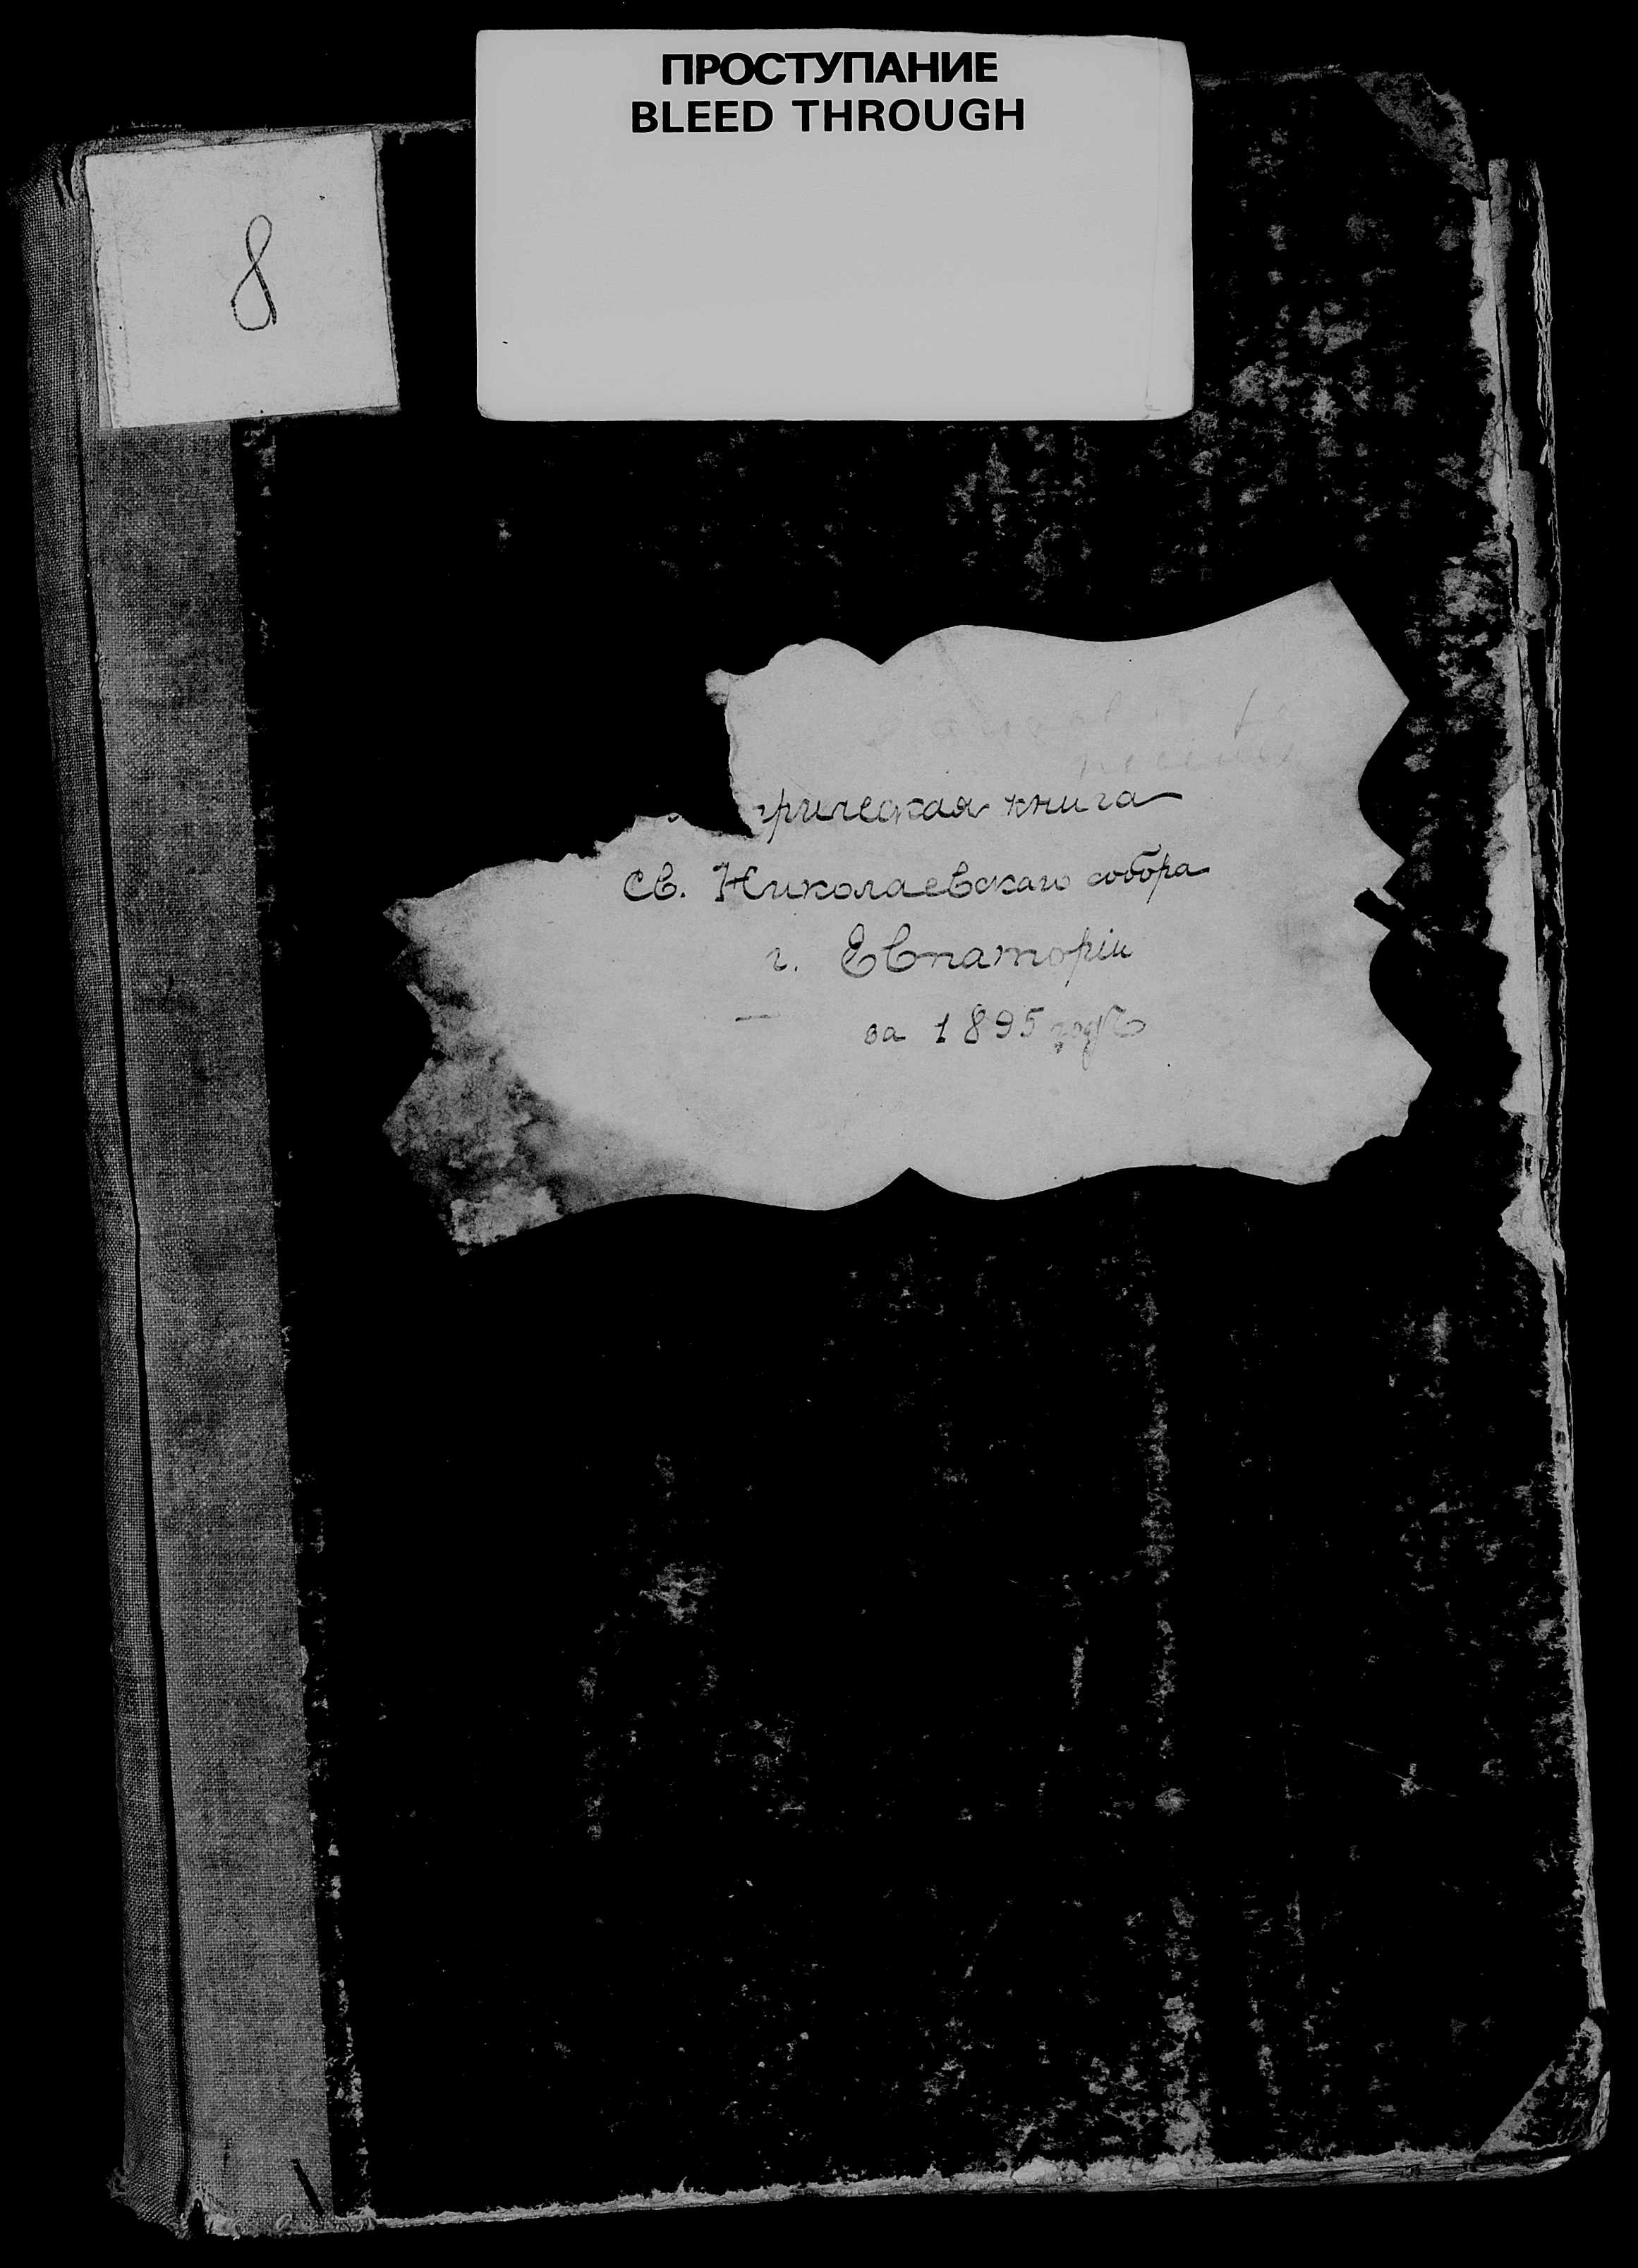 ПРОСТУПАНИЕ
BLEED THROUGH
8
трическая книга
Св. Николаевскаго собора
г. Евпаторіи
за 1895 годъ